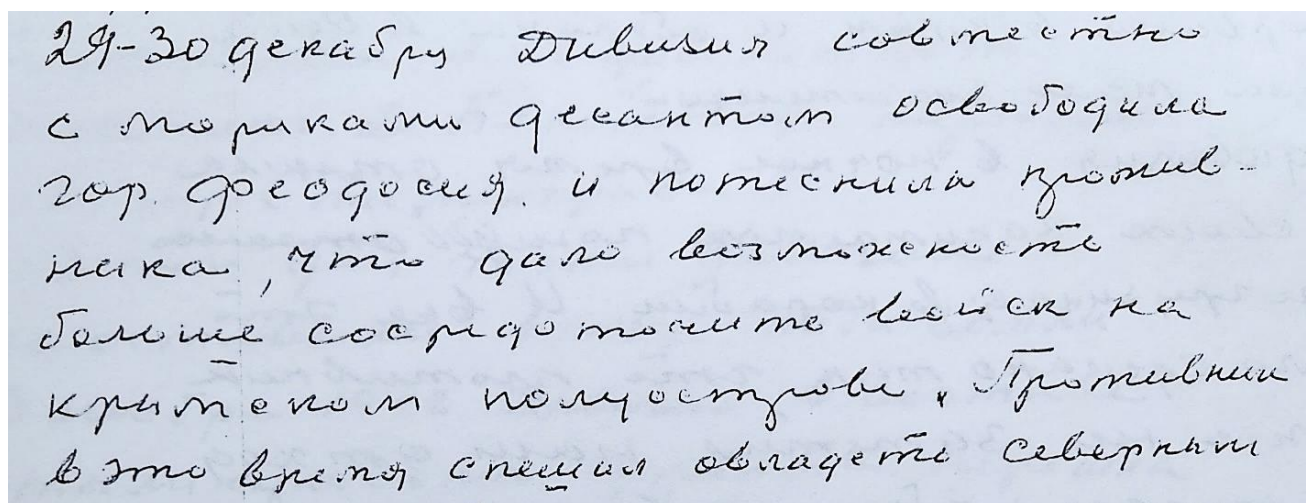 29-30 декабря Дивизия совместно
с моряками десантом освободила
гор. Феодосия. и потеснила против-
ника, что дало возможность
больше сосредоточить войск на
крымском полуострове. Противник
в это время спешил овладеть северным